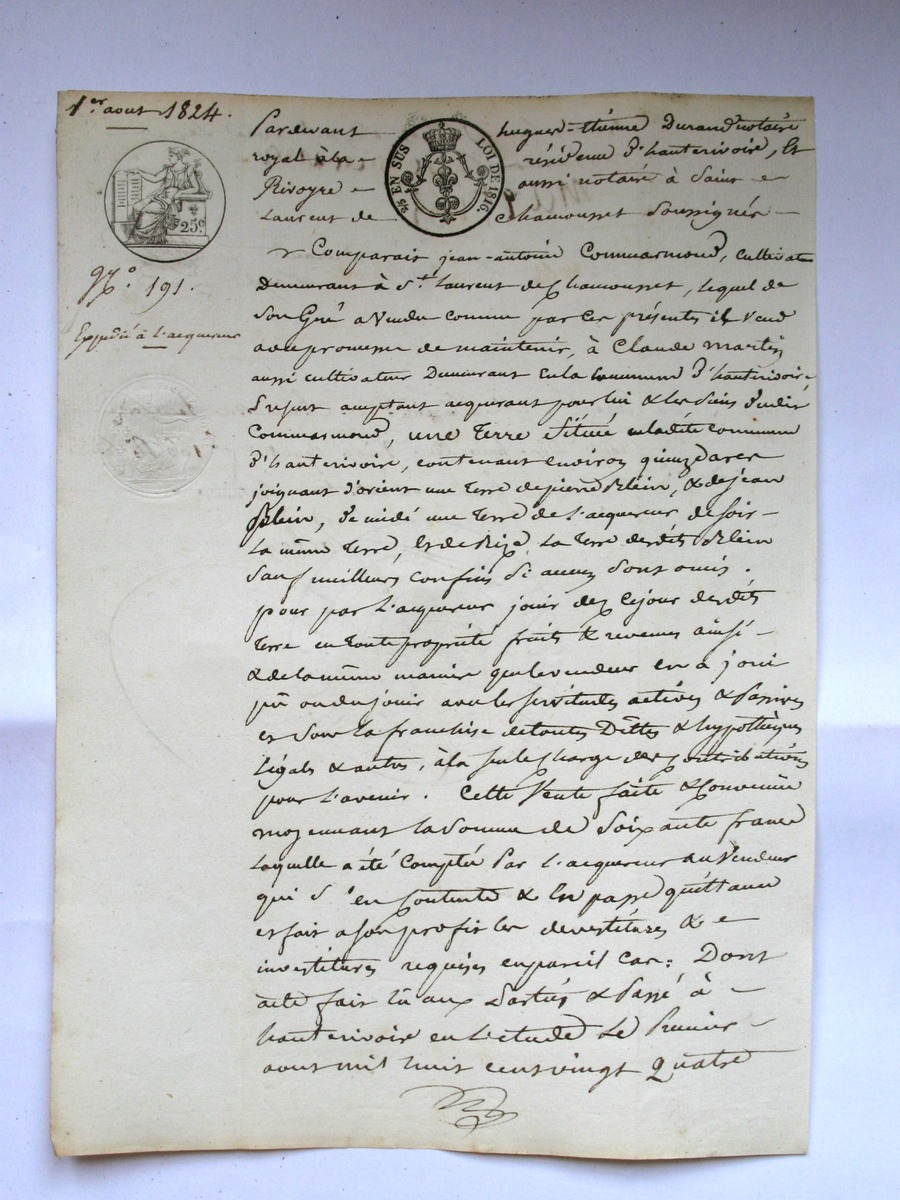 1er aout 1824.
25c
¼ EN SUS LOI DE 1816.
No. 191.
Expédié à l'acquereur
Pardevant hugues-étienne Durand notaire
royal à la résidence d'hauterivoire, Et
Rivoyre aussi notaire à Saint
Laurent de Chamousset Soussignés
Comparait jean-antoine Commarmond, cultivateur
Demeurant à St Laurent de Chamousset, lequel de
Son Gré a Vendu comme par ces présents il Vend
avec promesse de maintenir, à Claude martin
aussi cultivateur Demeurant En la Commune d'hauterivoire
present acceptant acquerant pour lui & les siens dudit
Commarmond, une Terre Située en ladite commune
d'hauterivoire, contenant environ quinze ares
joignant d'orient une Terre de pierre Blein, & de jean
Blein, de midi une Terre de l'acquereur de soir
La même Terre, Et de Bize La Terre desdits Blein
Sauf meilleurs confins Si aucuns Sont omis.
pour par L'acquereur jouir dez Cejour desdits
Terre en toute propriété fruits & revenus ainsi
& de la même maniere que le vendeur en a joui
pu ou du jouir avec les servitudes actives & Passives
et Sous la franchise de toutes Dettes & hypothèques
Légals & autres, à la seule Charge des Contributions
pour L'avenir. Cette Vente faite & Convenue
moyennant la Somme de Soixante francs
Laquelle a été Comptée Par L'acquereur au Vendeur
qui S'en Contente & En passe quittance
et fait a son profit les devestitures &
investitures requises en pareil cas: Dont
acte fait lu aux Parties & Passé à
hauterivoire en L'etude Le Premier
aout mil huit cent vingt Quatre